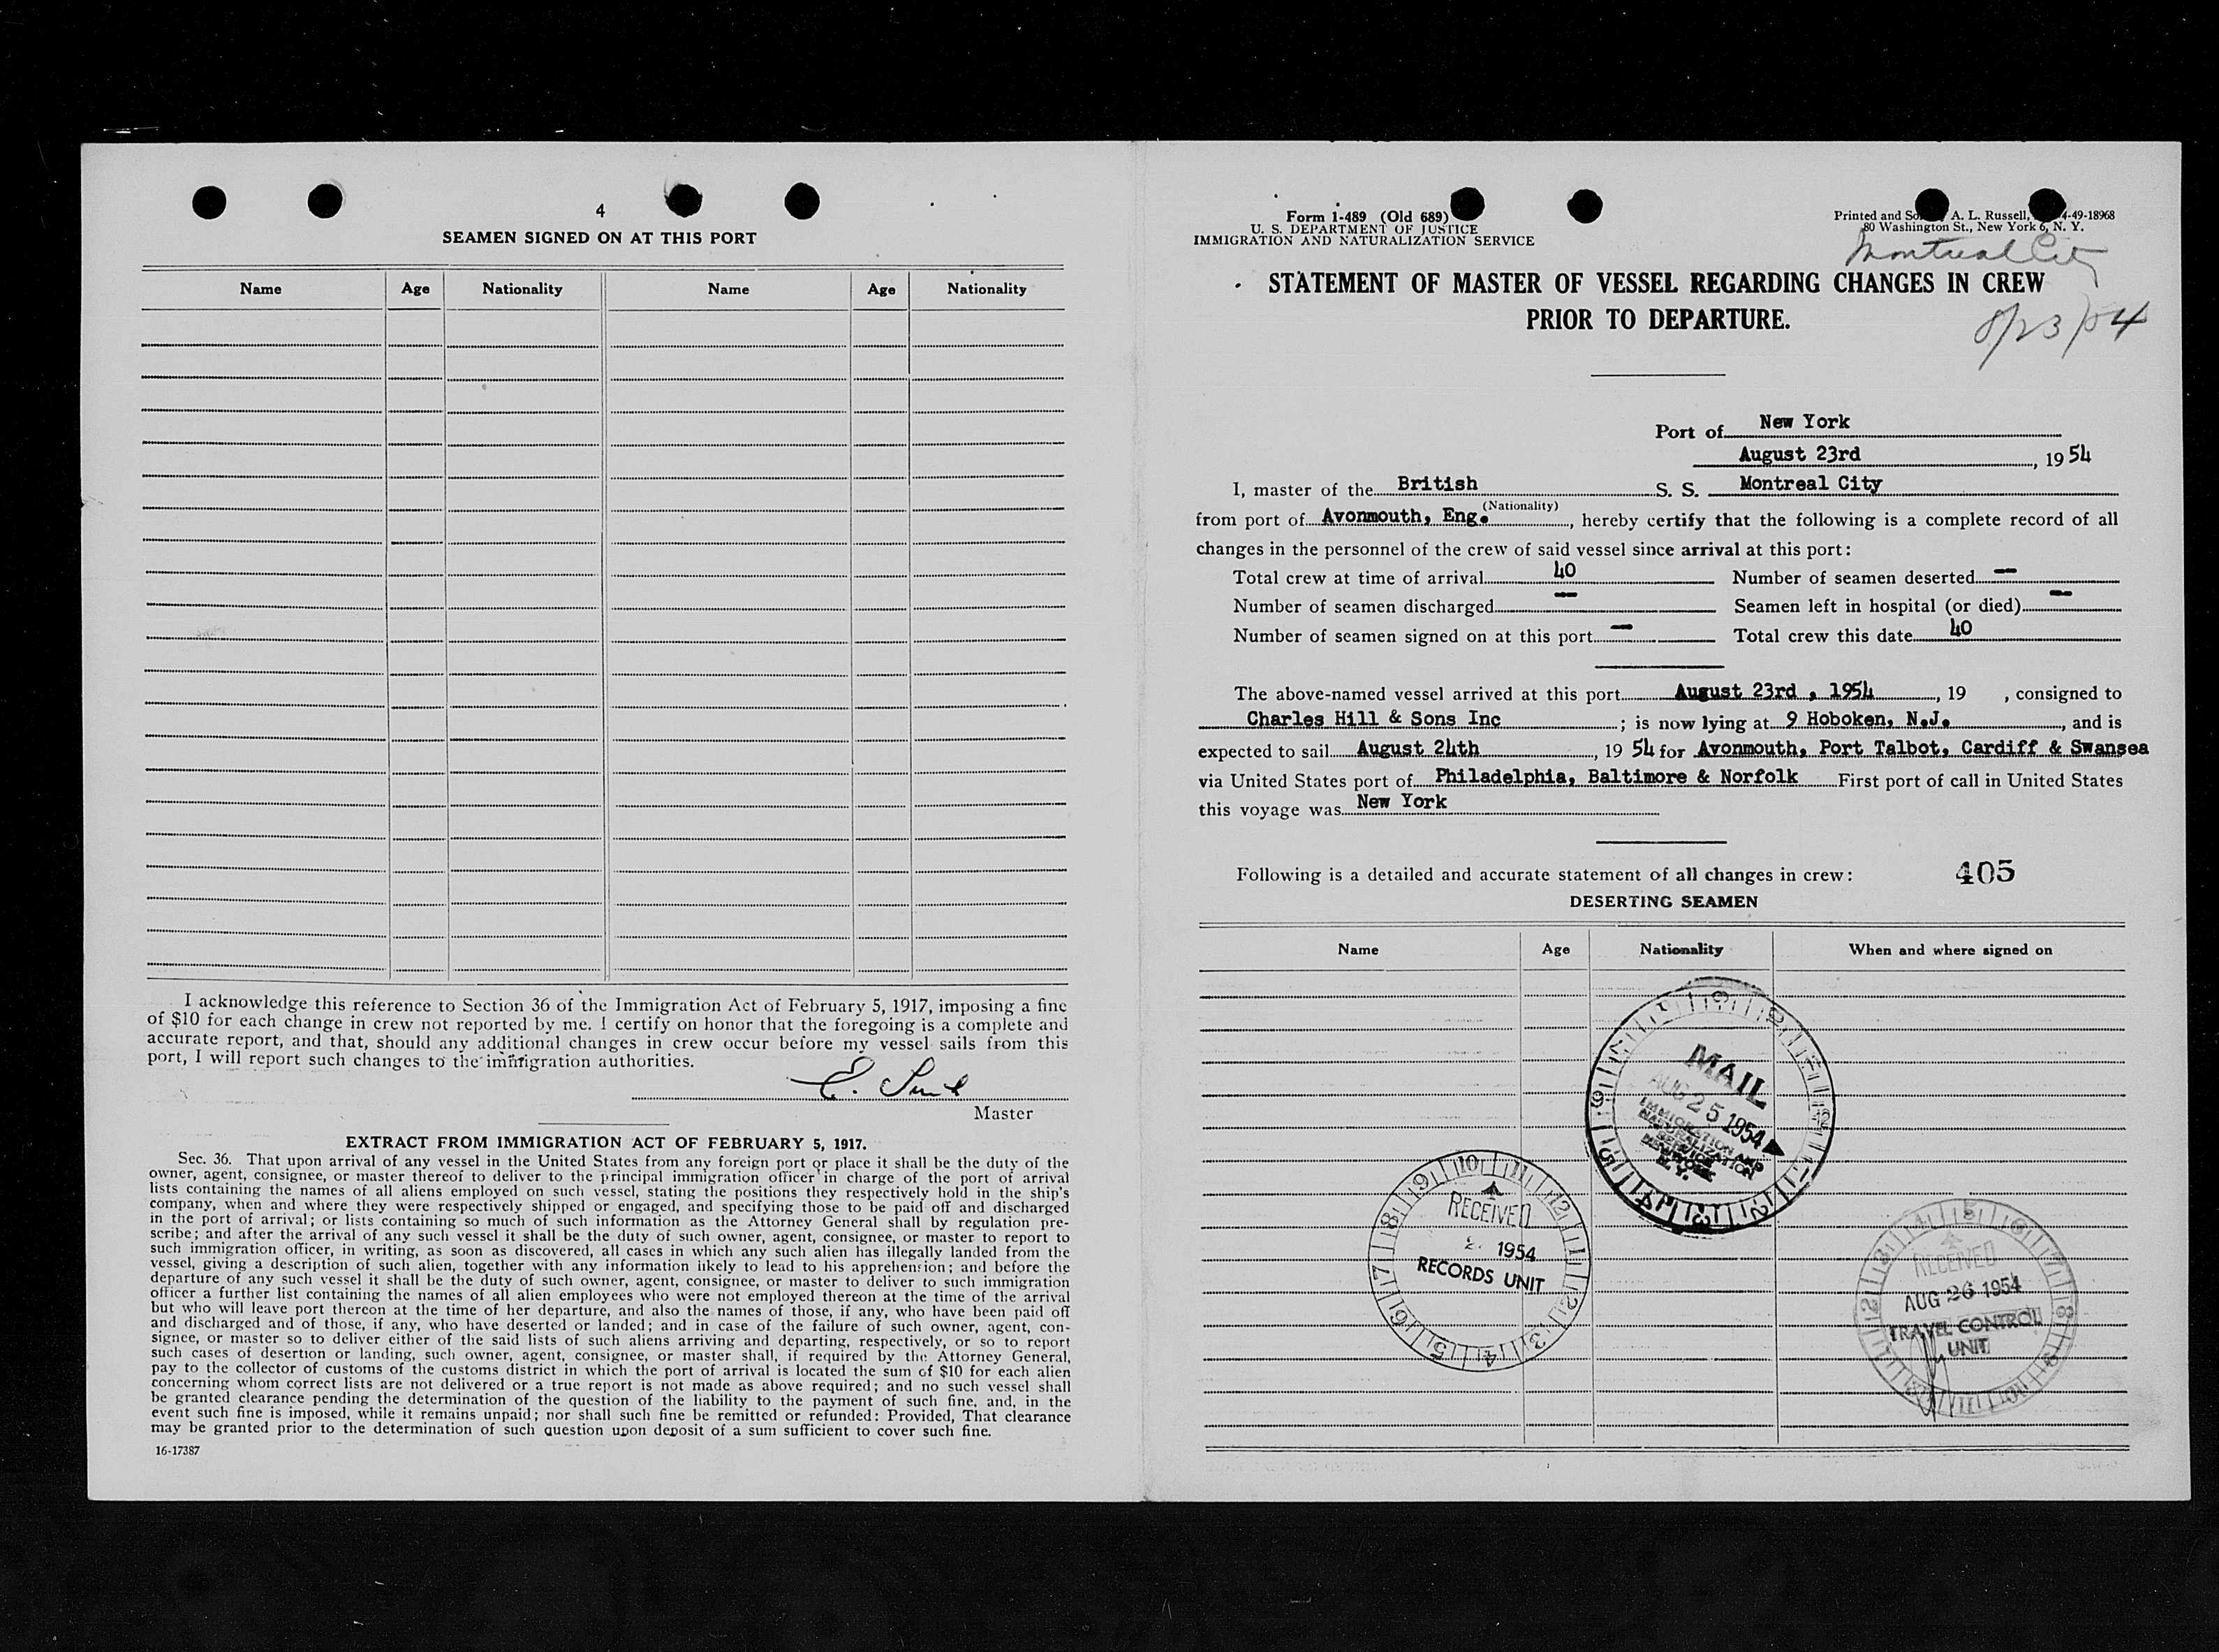 4
SEAMEN SIGNED ON AT THIS PORT
Name Age Nationality Name Age Nationality
I acknowledge this reference to Section 36 of the Immigration Act of February 5, 1917, imposing a fine
of $10 for each change in crew not reported by me. I certify on honor that the foregoing is a complete and
accurate report, and that, should any additional changes in crew occur before my vessel sails from this
port, I will report such changes to the immigration authorities.
E.
Master
EXTRACT FROM IMMIGRATION ACT OF FEBRUARY 5, 1917.
Sec. 36. That upon arrival of any vessel in the United States from any foreign port or place it shall be the duty of the
owner, agent, consignee, or master thereof to deliver to the principal immigration officer in charge of the port of arrival
lists containing the names of all aliens employed on such vessel, stating the positions they respectively hold in the ship's
company, when and where they were respectively shipped or engaged, and specifying those to be paid off and discharged
in the port of arrival; or lists containing so much of such information as the Attorney General shall by regulation pre-
scribe; and after the arrival of any such vessel it shall be the duty of such owner, agent, consignee, or master to report to
such immigration officer, in writing, as soon as discovered, all cases in which any such alien has illegally landed from the
vessel, giving a description of such alien, together with any information likely to lead to his apprehension; and before the
departure of any such vessel it shall be the duty of such owner, agent, consignee, or master to deliver to such immigration
officer a further list containing the names of all alien employees who were not employed thereon at the time of the arrival
but who will leave port thereon at the time of her departure, and also the names of those, if any, who have been paid off
and discharged and of those, if any, who have deserted or landed; and in case of the failure of such owner, agent, con-
signee, or master so to deliver either of the said lists of such aliens arriving and departing, respectively, or so to report
such cases of desertion or landing, such owner, agent, consignee, or master shall, if required by the Attorney General,
pay to the collector of customs of the customs district in which the port of arrival is located the sum of $10 for each alien
concerning whom correct lists are not delivered or a true report is not made as above required; and no such vessel shall
be granted clearance pending the determination of the question of the liability to the payment of such fine, and, in the
event such fine is imposed, while it remains unpaid; nor shall such fine be remitted or refunded: Provided, That clearance
may be granted prior to the determination of such question upon deposit of a sum sufficient to cover such fine.
16-17387
Form 1-489 (Old 689)
U. S. DEPARTMENT OF JUSTICE
IMMIGRATION AND NATURALIZATION SERVICE
Printed and A. L. Russell, 4-49-18968
80 Washington St., New York 6, N. Y.
Montreal City
STATEMENT OF MASTER OF VESSEL REGARDING CHANGES IN CREW
PRIOR TO DEPARTURE.
8/23/54
Port of New York
August 23rd, 1954
I, master of the British S. S. Montreal City
(Nationality)
from port of Avonmouth, Eng., hereby certify that the following is a complete record of all
changes in the personnel of the crew of said vessel since arrival at this port:
Total crew at time of arrival 40 Number of seamen deserted —
Number of seamen discharged — Seamen left in hospital (or died) —
Number of seamen signed on at this port — Total crew this date 40
The above-named vessel arrived at this port August 23rd , 1954, 19 , consigned to
Charles Hill & Sons Inc; is now lying at 9 Hoboken, N.J., and is
expected to sail August 24th, 19 54 for Avonmouth, Port Talbot, Cardiff & Swansea
via United States port of Philadelphia, Baltimore & Norfolk First port of call in United States
this voyage was New York
Following is a detailed and accurate statement of all changes in crew: 405
DESERTING SEAMEN
Name Age Nationality When and where signed on
MAIL
AUG 25 1954
IMMIGRATION AND
NATURALIZATION
SERVICE
N.Y.
RECEIVED
1954
RECORDS UNIT
RECEIVED
AUG 26 1954
TRAVEL CONTROL
UNIT